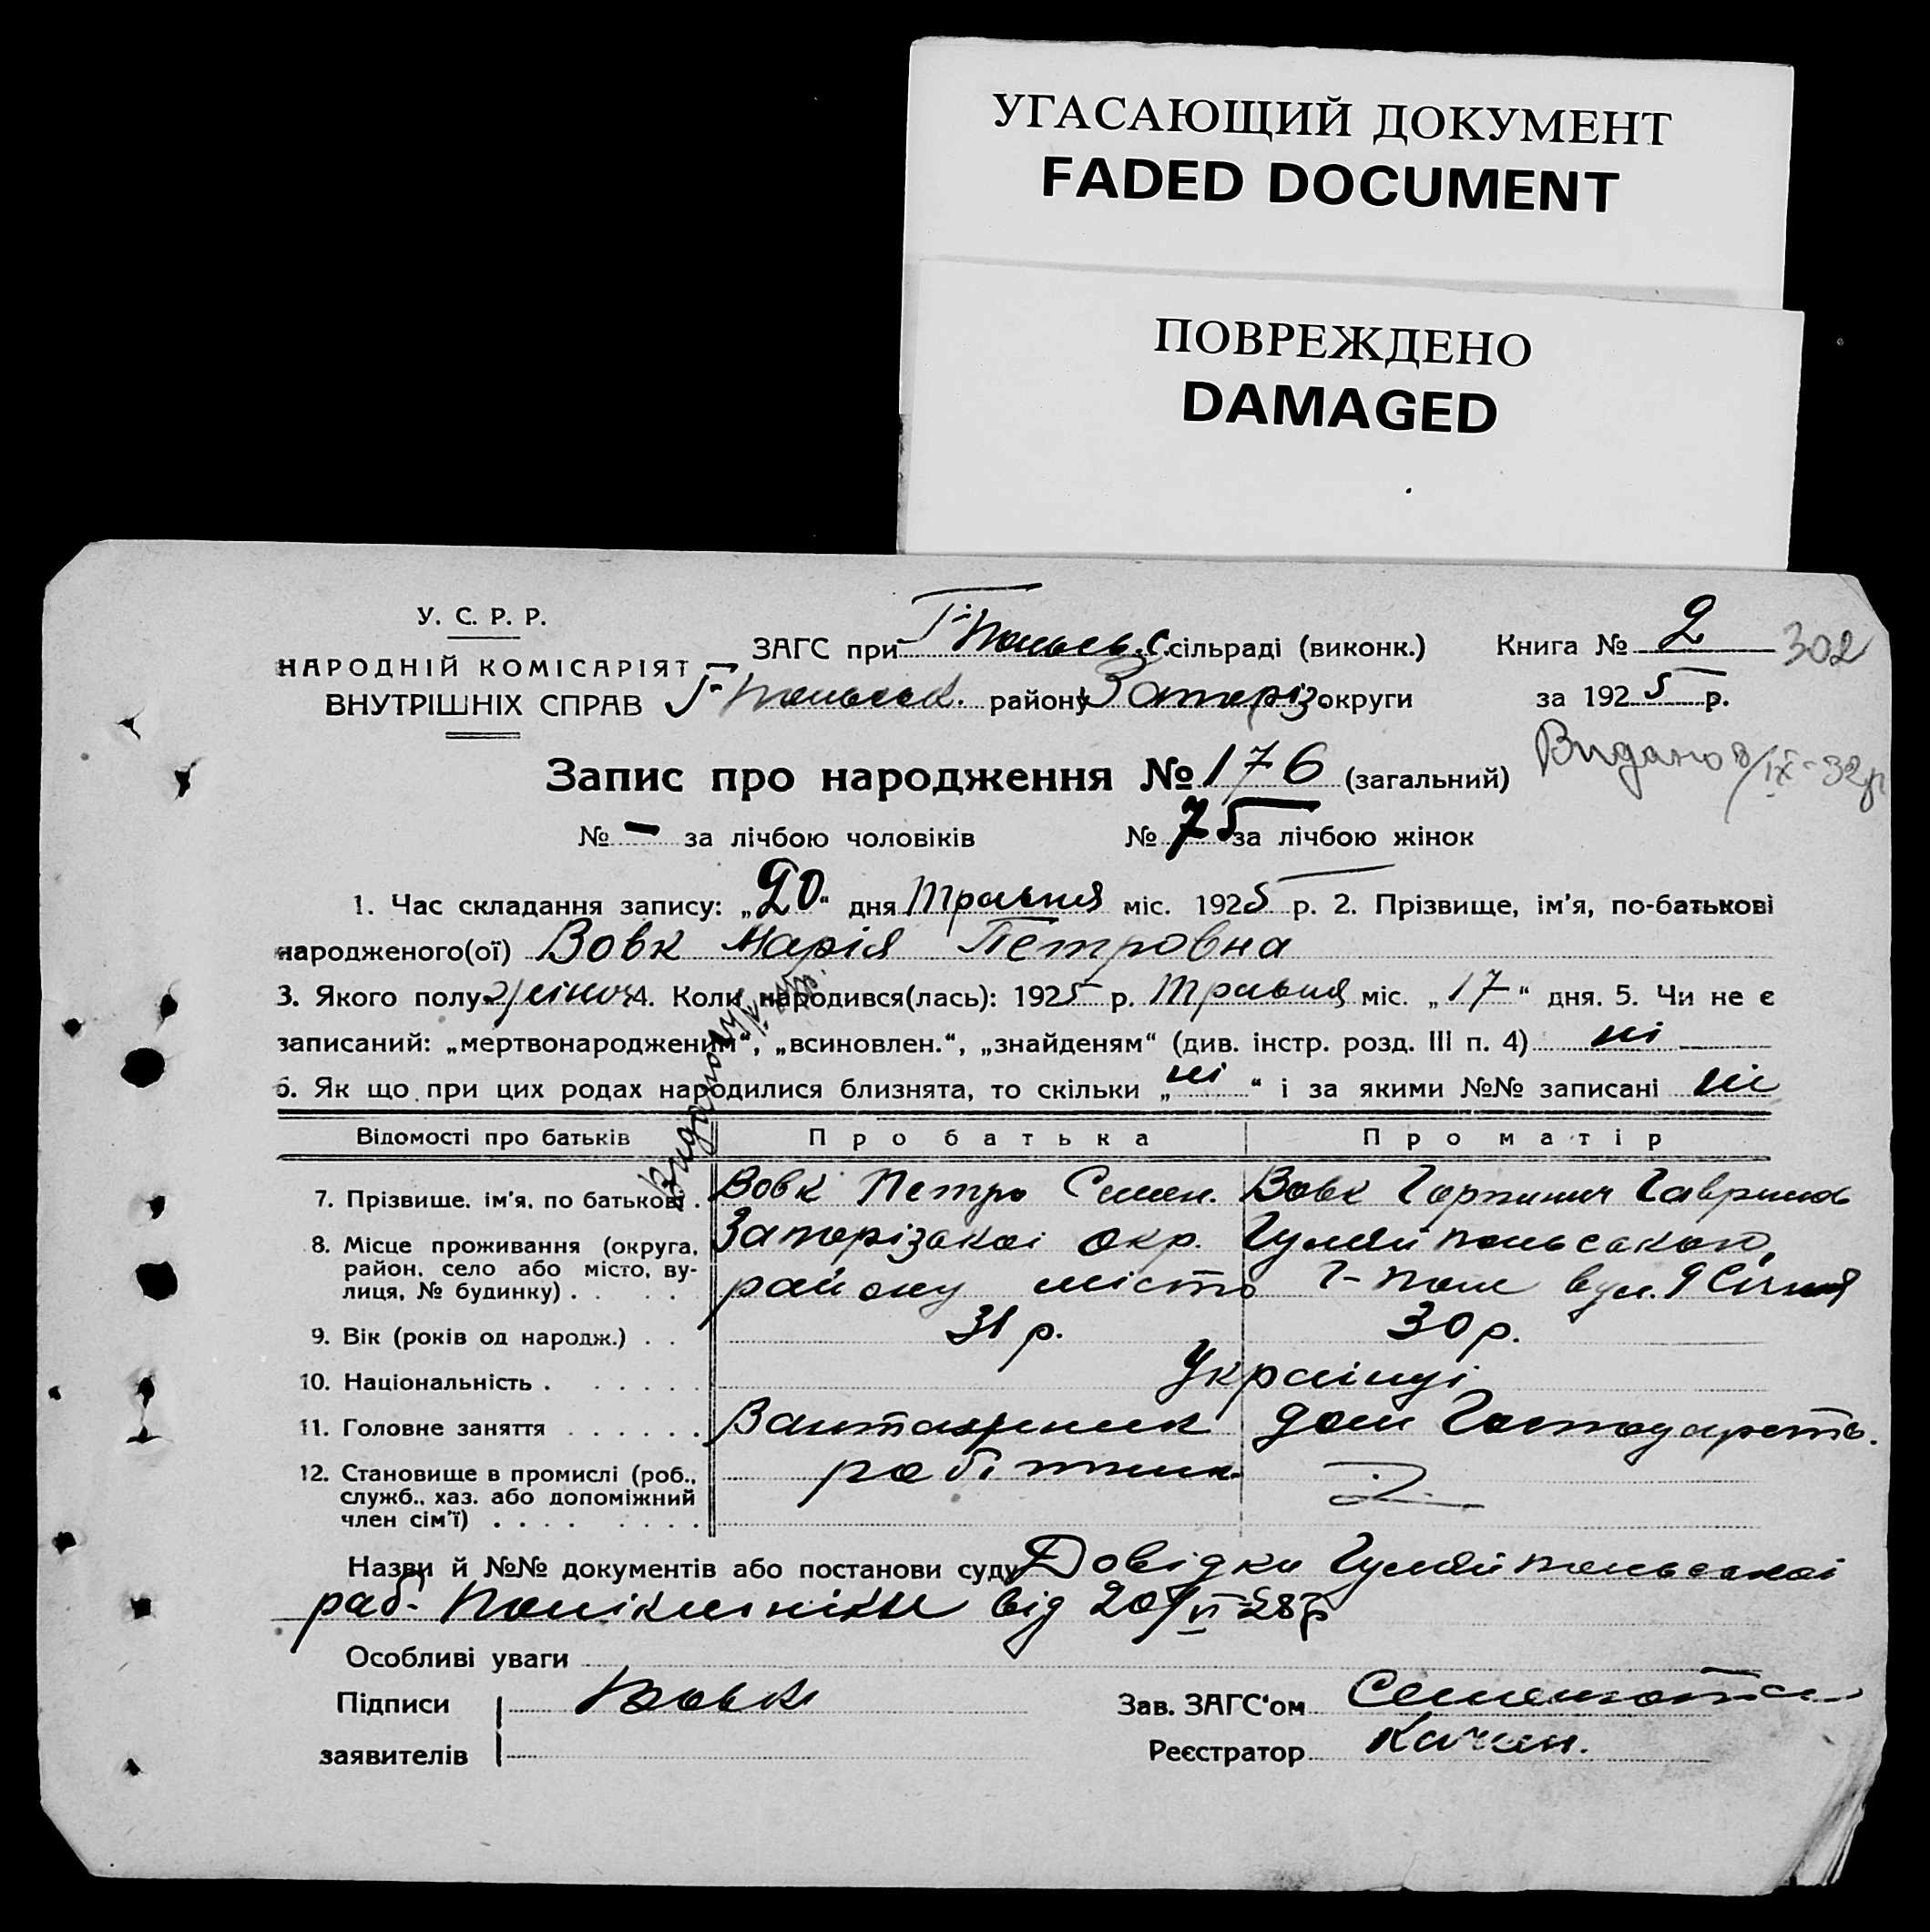 УГАСАЮЩИЙ ДОКУМЕНТ
FADED DOCUMENT
ПОВРЕЖДЕНО
DAMAGED
У. С. Р. Р.
НАРОДНІЙ КОМІСАРІЯТ
ВНУТРІШНІХ СПРАВ
ЗАГС при Г-Польск. сільраді (виконк.) Книга № 2 302
Г-Польськ. району Запоріз округи за 1925 р.
Видано 8/IX-32р
Запис про народження № 176 (загальний)
№ – за лічбою чоловіків № 75 за лічбою жінок
1. Час складання запису: „20“ дня Травня міс. 1925 р. 2. Прізвище, ім'я, по-батькові
народженого(ої) Вовк Марія Петровна
3. Якого полу жіноч 4. Коли народився(лась): 1925 р. Травня міс. „17“ дня. 5. Чи не є
записаний: „мертвонародженим“, „всиновлен.“, „знайденям“ (див. інстр. розд. III п. 4) ні
6. Як що при цих родах народилися близнята, то скільки „ні“ і за якими №№ записані ні
Видано
Відомості про батьків Про батька Про матір
7. Прізвище, ім'я, по батькові . Вовк Петро Семен. Вовк Горпина Гаврилов
8. Місце проживання (округа, район, село або місто, вулиця, № будинку) . . . . Запорізькоі Окр. Гуляйпольського,
району місто Г-Поле вул. 9 Січня
9. Вік (років од народж.) . . 31 р. 30 р.
10. Національність . . . . . . Українці
11. Головне заняття . . . . . . Вантажник дом Господарств.
12. Становище в промислі (роб., служб., хаз. або допоміжний член сім'ї) . . . . . . . . робітник
Назви й №№ документів або постанови суду Довідки Гуляйпольськоі
раб. Поліклініки від 20/VI-28р
Особливі уваги
Підписи заявителів Вовк
Зав. ЗАГС'ом
Реєстратор